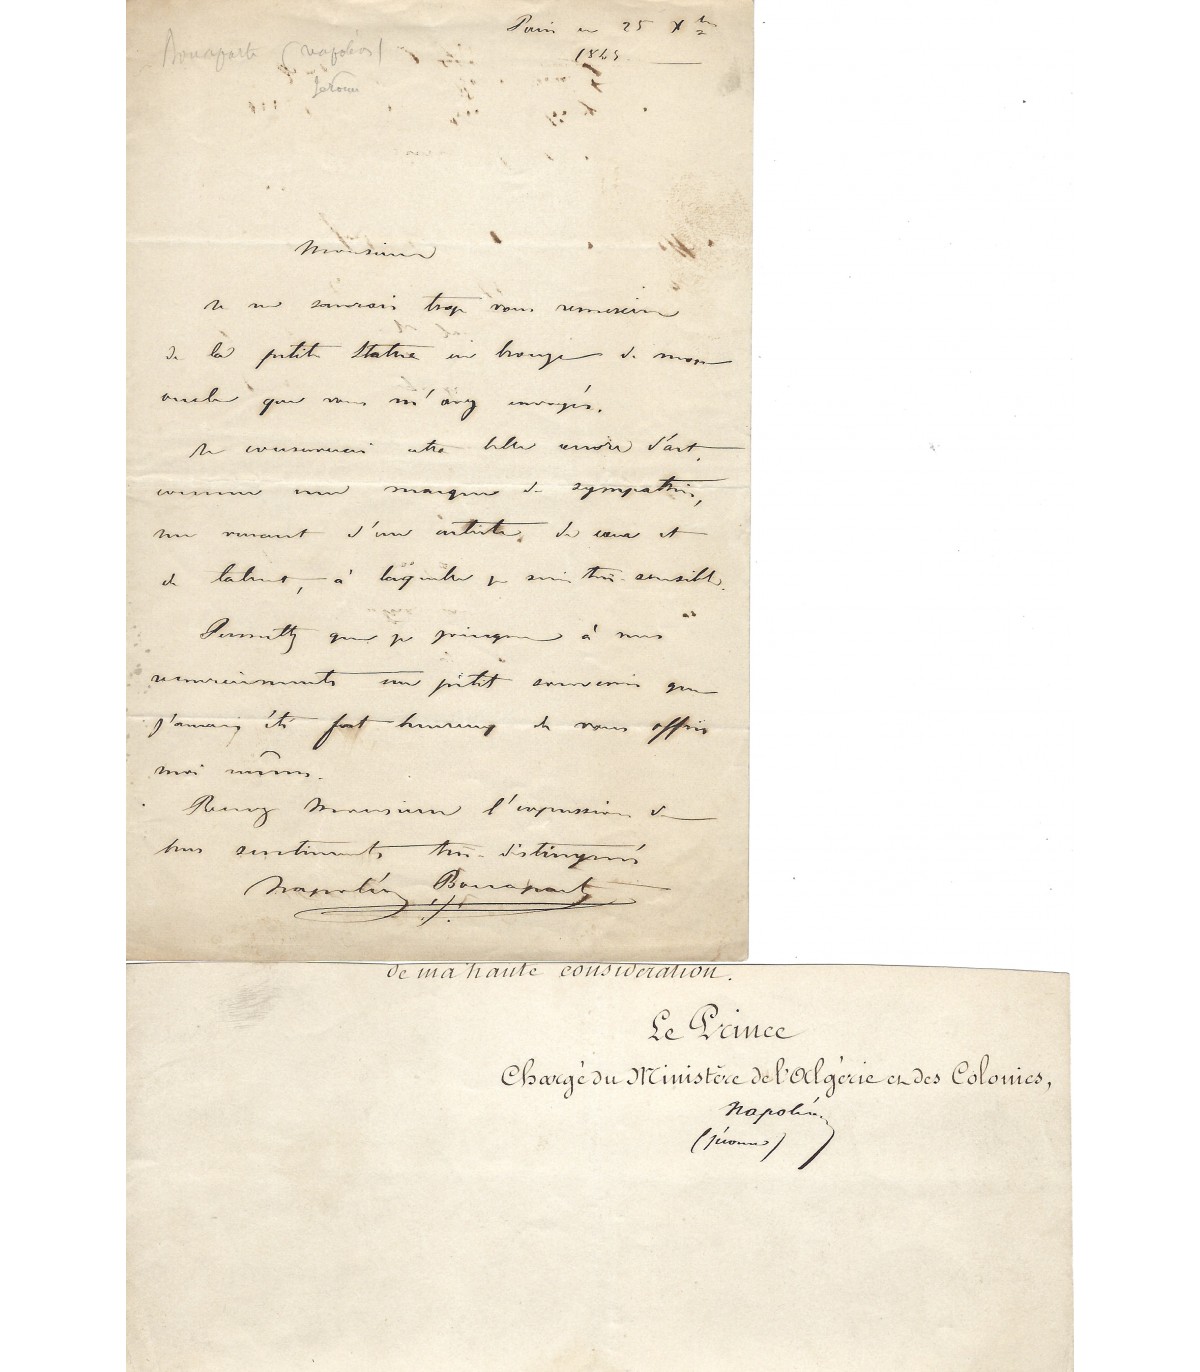 Bonaparte (Napoléon)
Jérôme
Paris ce 25 Xbre
Monsieur
Je ne saurais trop vous remercier
de la petite statue en bronze de mon
oncle que vous m'avez envoyée.
Je conserverai cette belle œuvre d'art,
comme une marque de sympathie,
me venant d'un artiste de cœur et
de talent, à laquelle je suis très-sensible.
Permettez que je joigne à mes
remerciements un petit souvenir que
j'aurais été fort heureux de vous offrir
moi même.
Recevez Monsieur l'expression de
mes sentiments très-distingués
Napoléon Bonaparte
de ma haute considération.
Le Prince
Chargé du Ministère de l'Algérie et des Colonies,
Napoléon
(Jérôme)